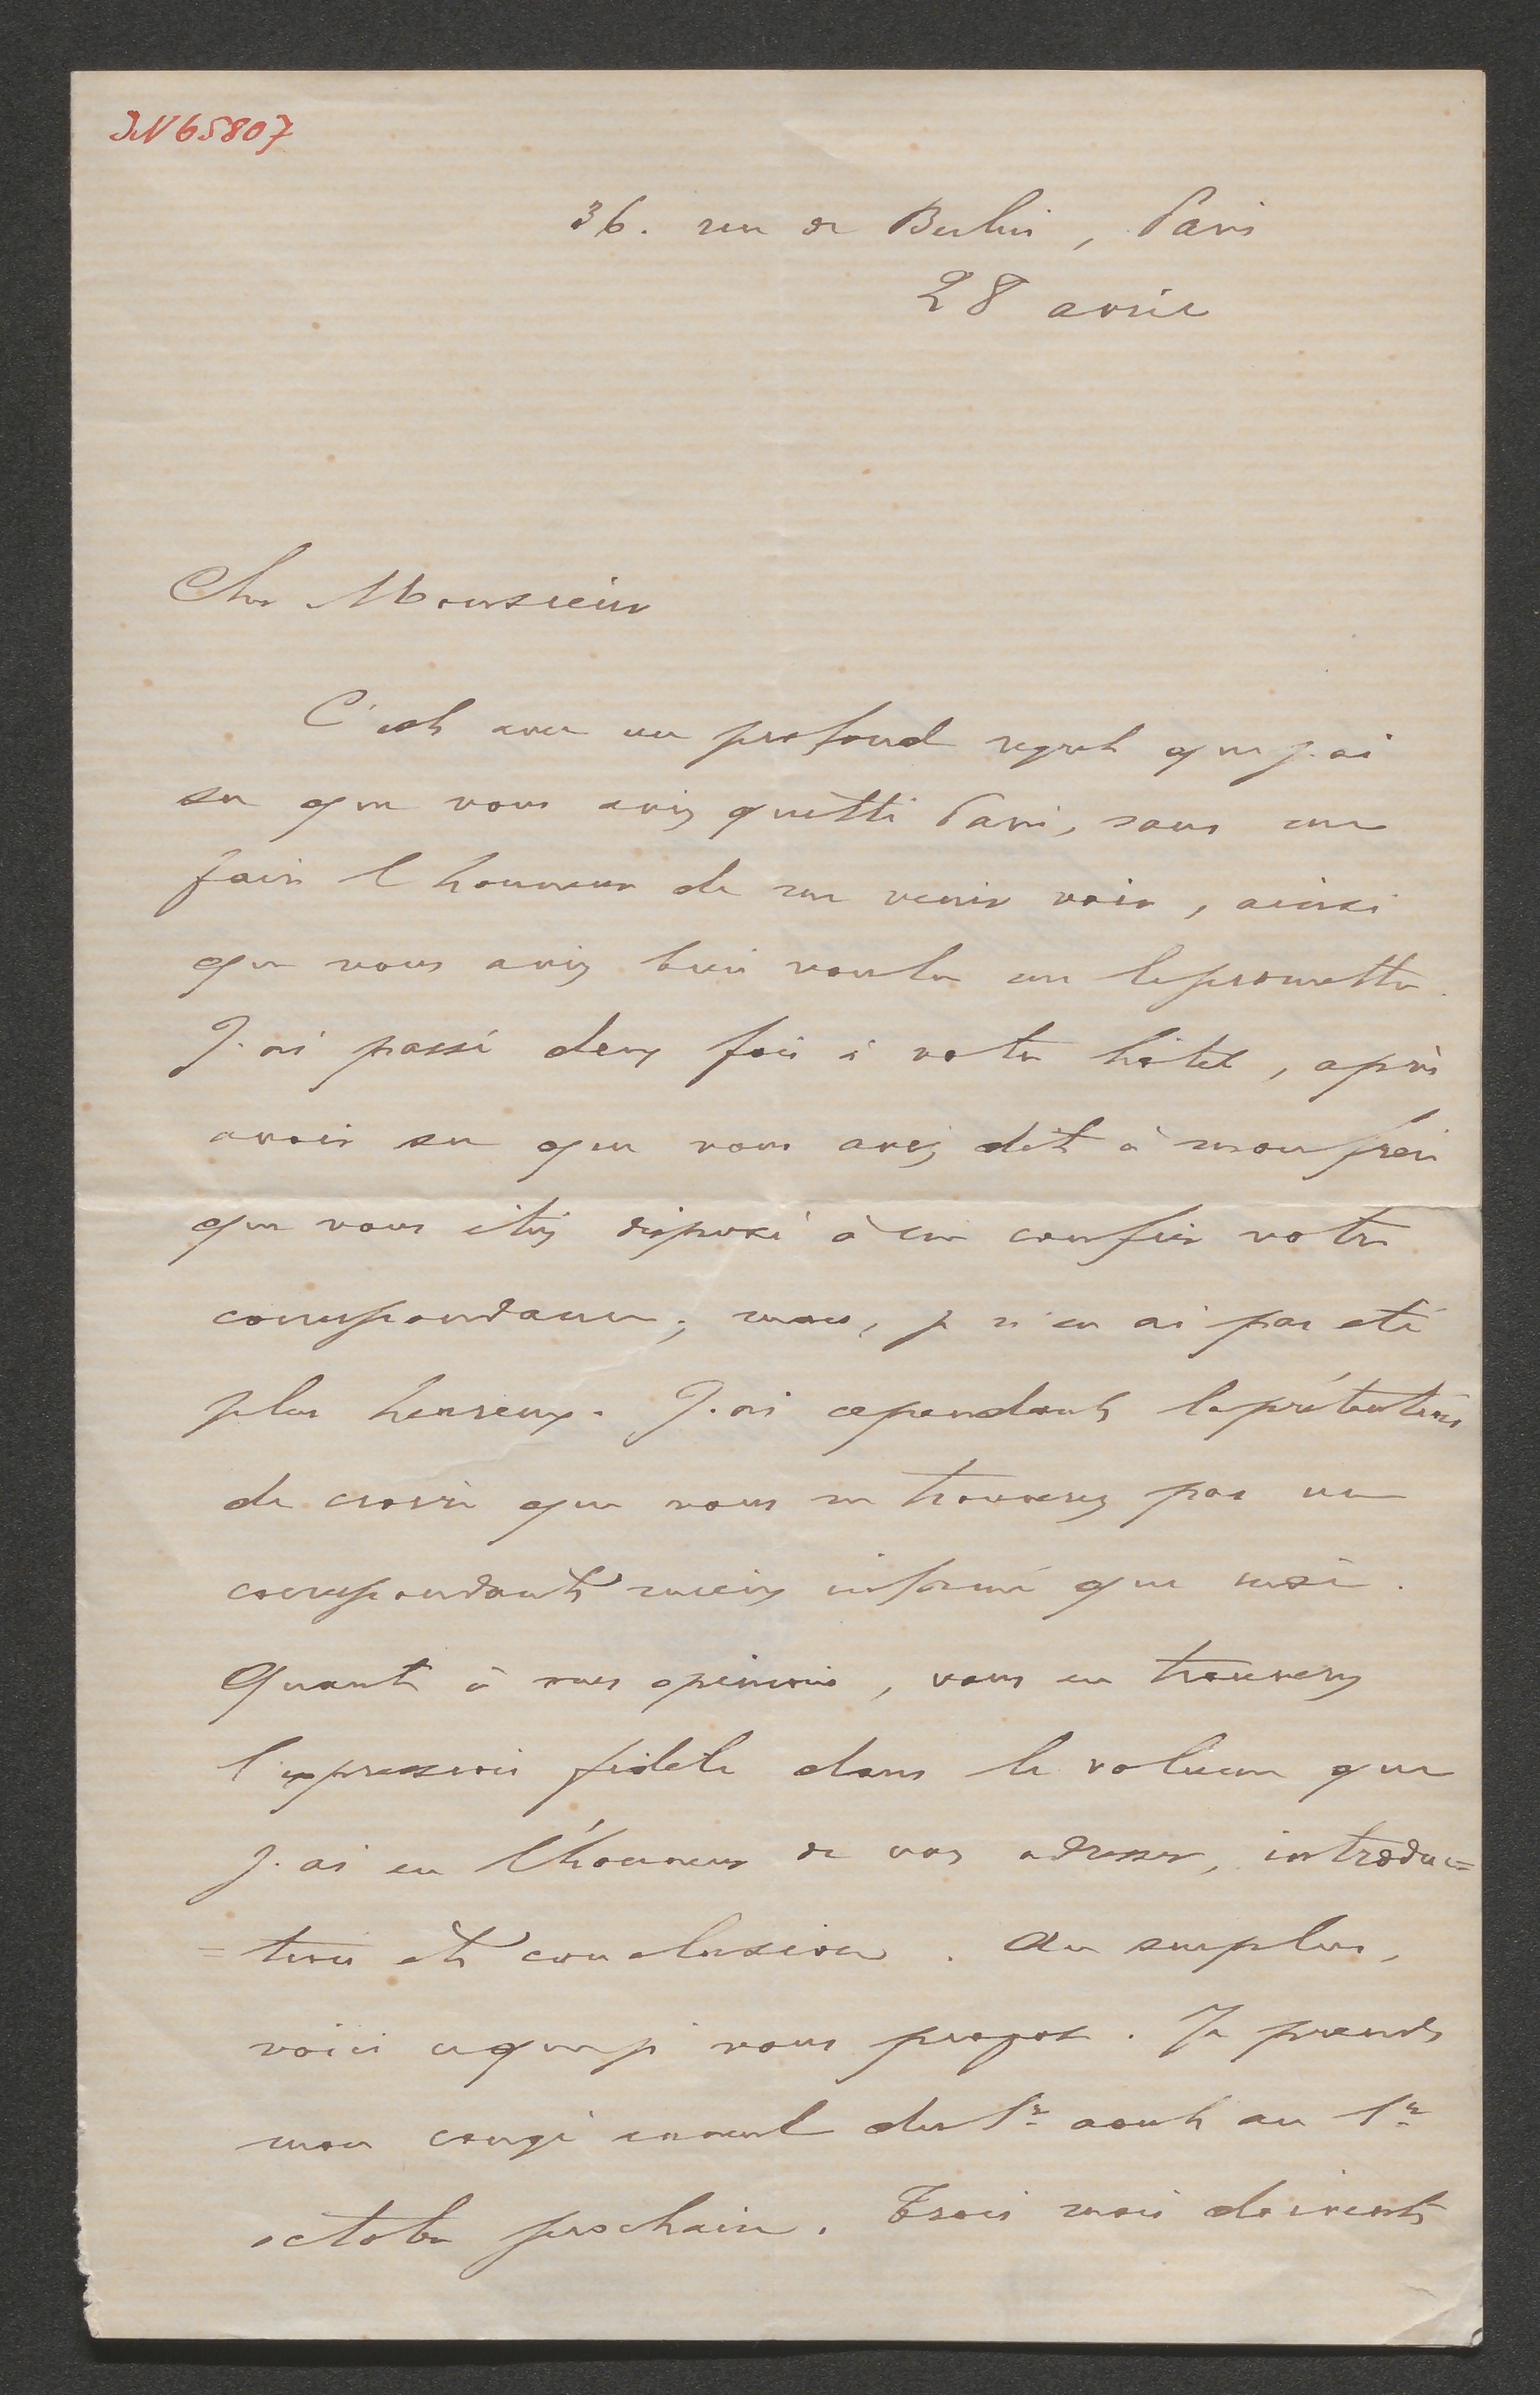 IN 65807
36. rue de Berlin, Paris
28 avril
Cher Monsieur
C'est avec un profond regret que j'ai
su que vous aviez quitté Paris, sans me
faire l'honneur de me venir voir, ainsi
que vous aviez bien voulu me le promettre.
J'ai passé deux fois à votre hôtel, après
avoir su que vous aviez dit à mon frère
que vous étiez disposé à me confier votre
correspondance; mais, je n'en ai pas été
plus heureux. J'ai cependant la prétention
de croire que vous ne trouverez pas un
correspondant mieux informé que moi.
Quant à mes opinions, vous en trouverez
l'expression fidèle dans le volume que
j'ai eu l'honneur de vous adresser, introduc=
=tion et conclusion. Au surplus,
voici ce que je vous propose. Je prends
mon congé annuel du 1er août au 1er
octobre prochain. Trois mois doivent